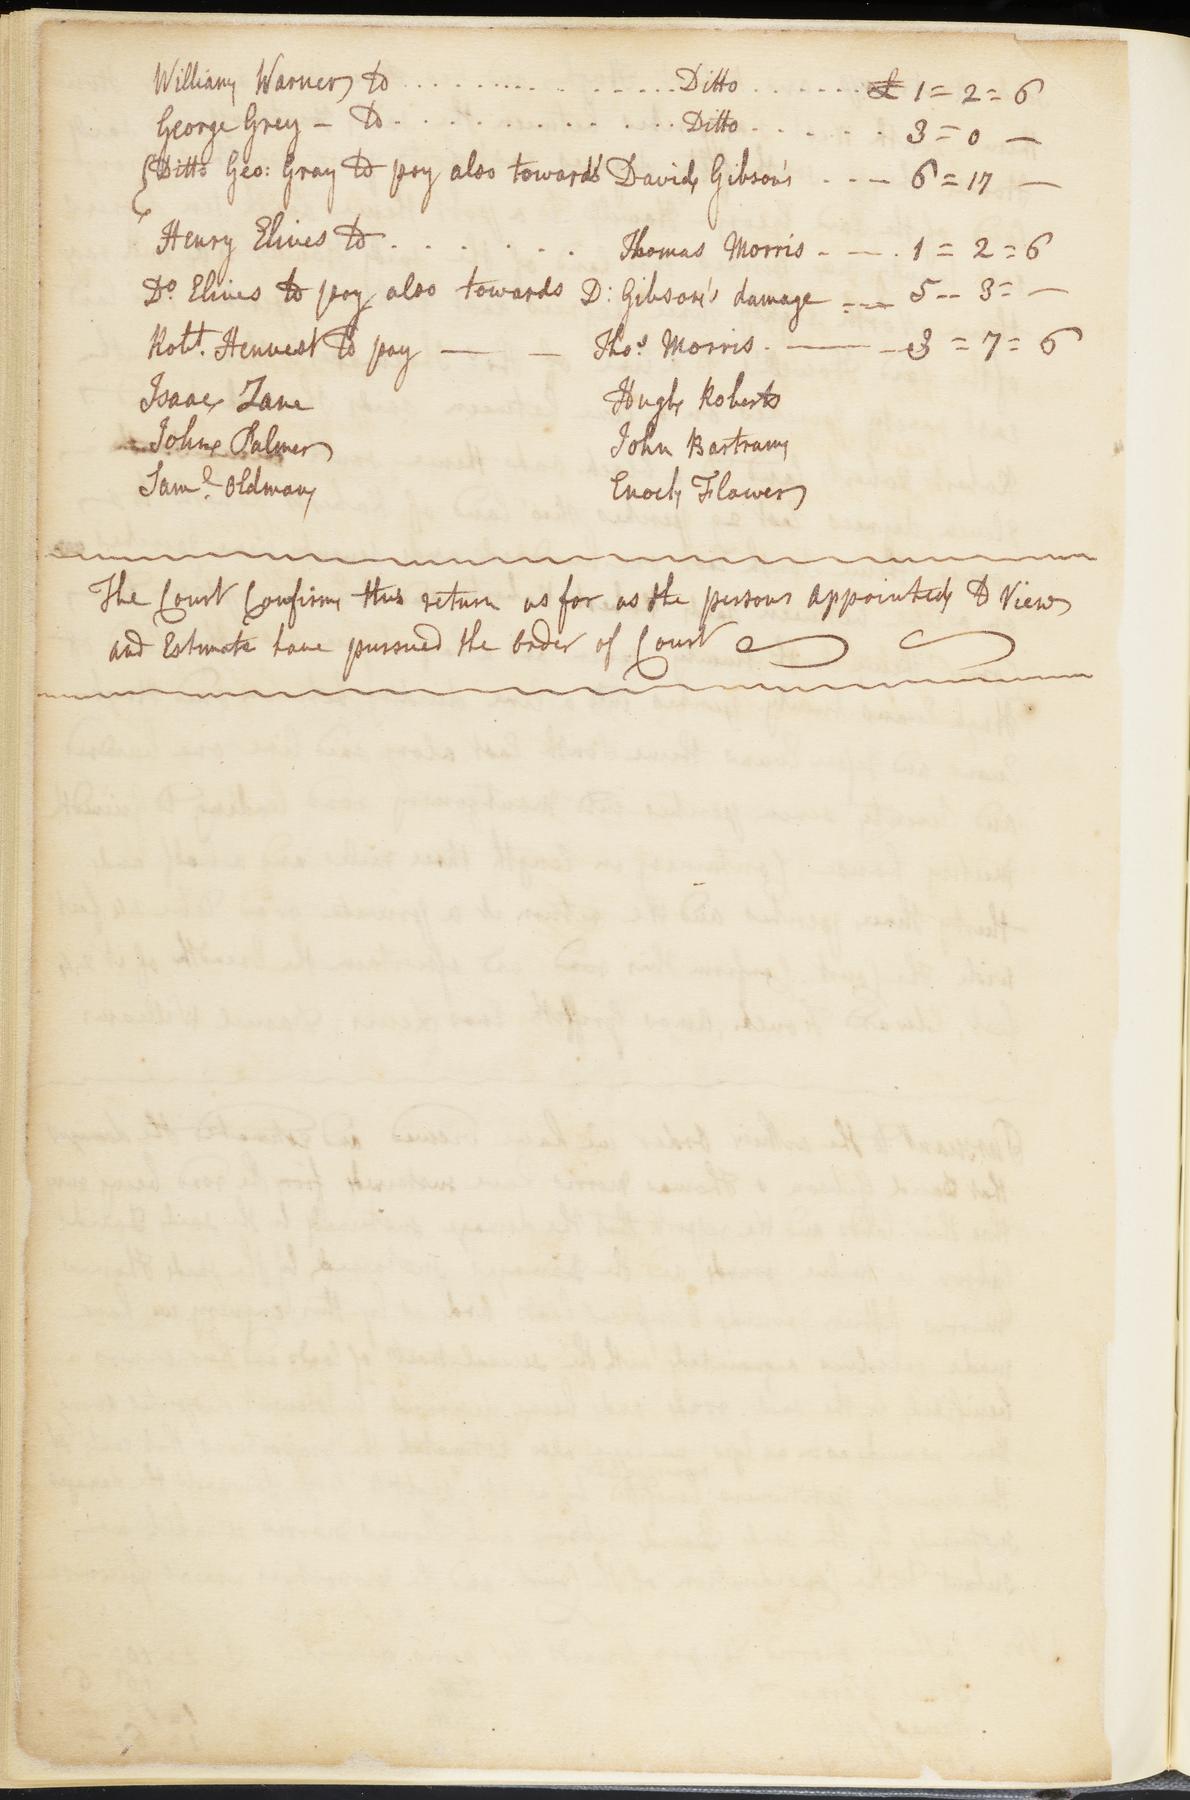 William Warner to . . . . . . . . . . . . . . . Ditto . . . . . . £ 1 = 2 = 6
George Grey – to . . . . . . . . . . . . . Ditto . . . . . . 3 = 0 —
Ditto Geo: Gray to pay also towards David Gibson's - - — 6 = 17 —
Henry Elives to . . . . . . Thomas Morris - — . 1 = 2 = 6
Do. Elives to pay also towards D: Gibson's damage - — 5 -- 3 = —
Robt. Henvest to pay — — Thos. Morris . — — 3 = 7 = 6
Isaac Zane Hugh Roberts
John Palmer John Bartram
Saml. Oldman Enoch Flower
The Court Confirm this return as far as the persons appointed to View
and Estimate have pursued the order of Court